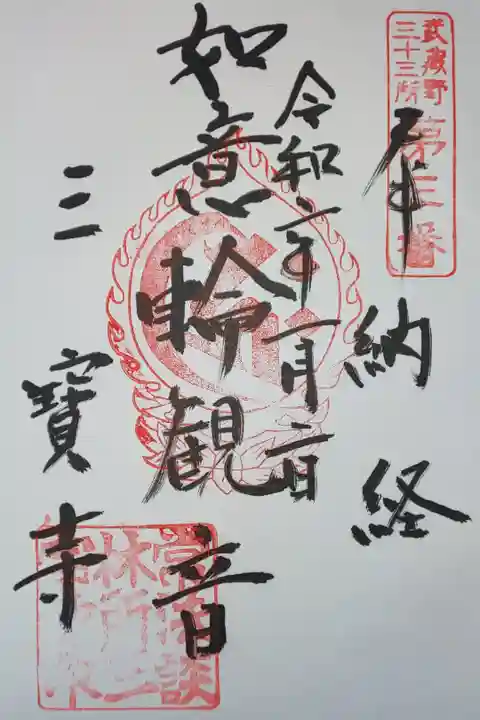 武蔵野
三十三所
第三番
奉納経
令和二年一月二日
如意輪観音
三寳寺